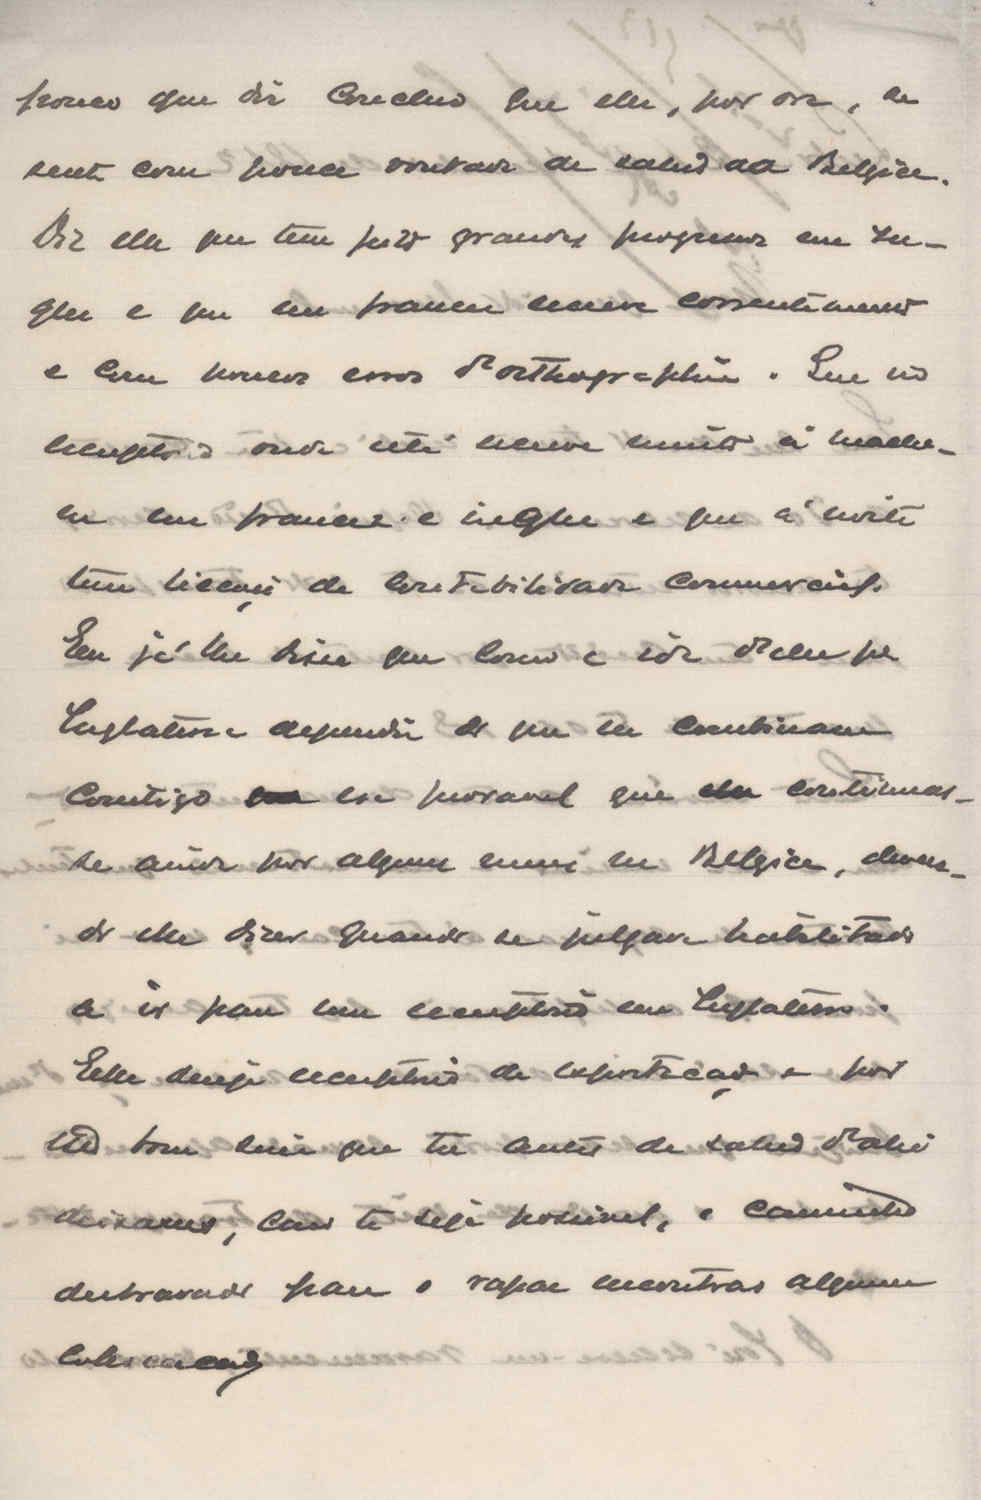 pouco que diz concluo que elle, por ora, se
sente com pouca vontade de sahir da Belgica.
Diz elle que tem feito grandes progressos em In-
glez e que em francez escreve correntemente
e com poucos erros d'orthographia. Que no
escriptorio onde está escreve muito á machi-
na em francez e inglez e que á noite
tem licções de contabilidade commercial.
Eu já lhe disse que como a ida d'elle pª
Inglaterra dependia do que eu combinasse
comtigo era provavel que elle continuas-
se ainda por alguns mezes na Belgica, deven-
do elle dizer quando se julgava habilitado
a ir para um escriptorio em Inglaterra.
Elle deseja escriptorio de exportação e por
isso bom seria que tu antes de sahir d'ahi
deixasses, caso te seja possivel, o caminho
desbravado para o rapaz encontrar alguma
collocação